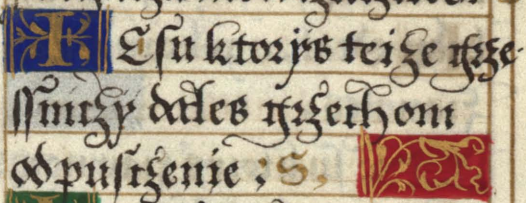 IEsu ktorÿs teize grze
ssniczÿ dales grzechom
odpusczenie : S,